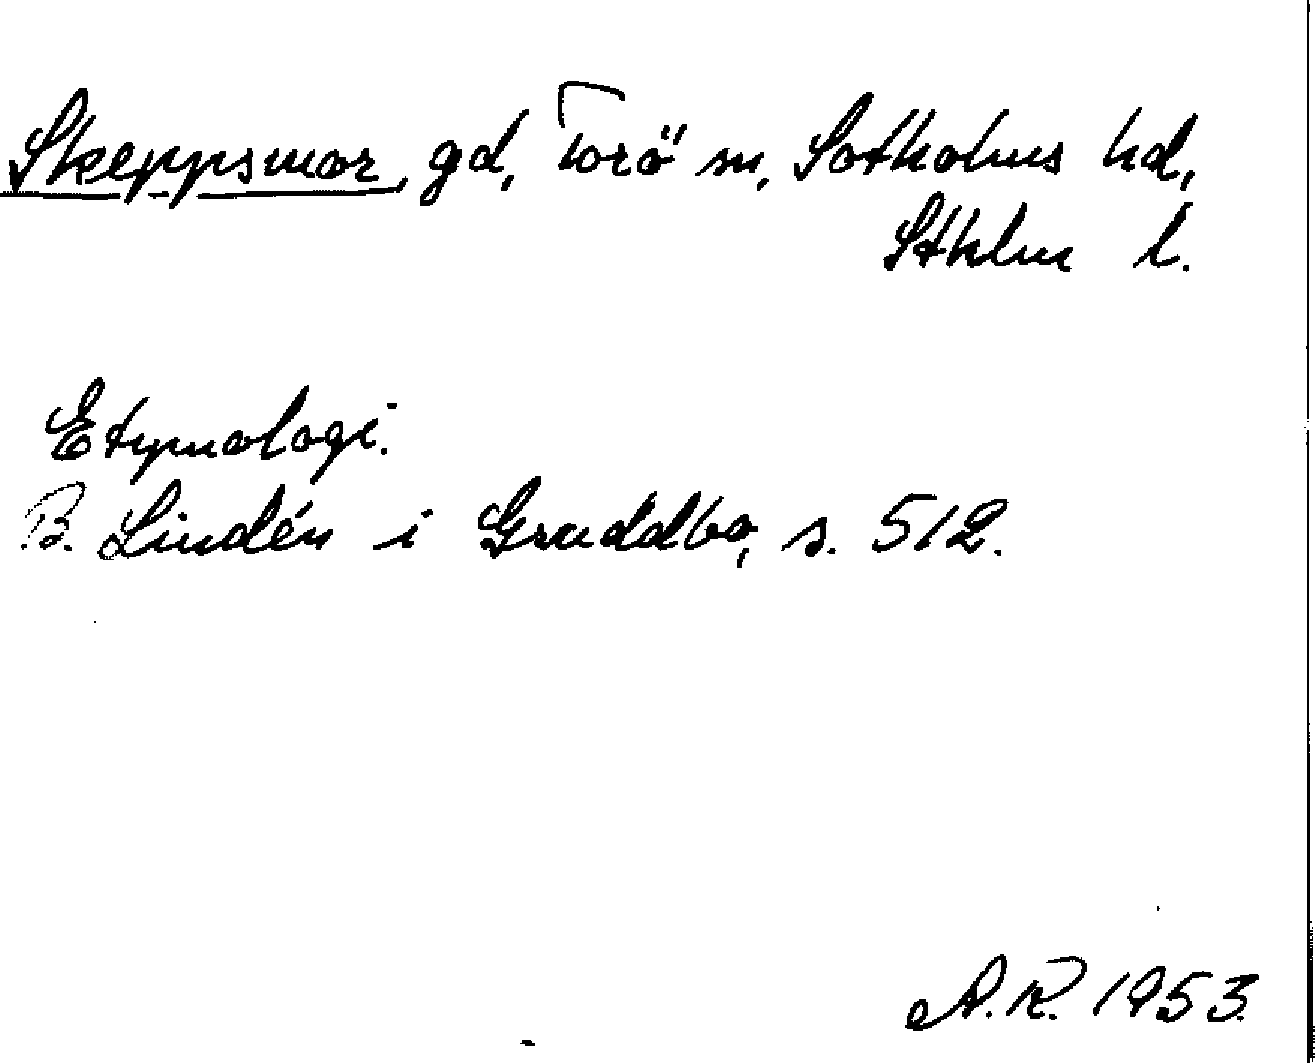 Skeppsmor, gd, Torö sn, Sotholms hd,
Sthlms l.
Etymologi.
B. Lindén i Gruddbo, s. 512.
A.R. 1953.